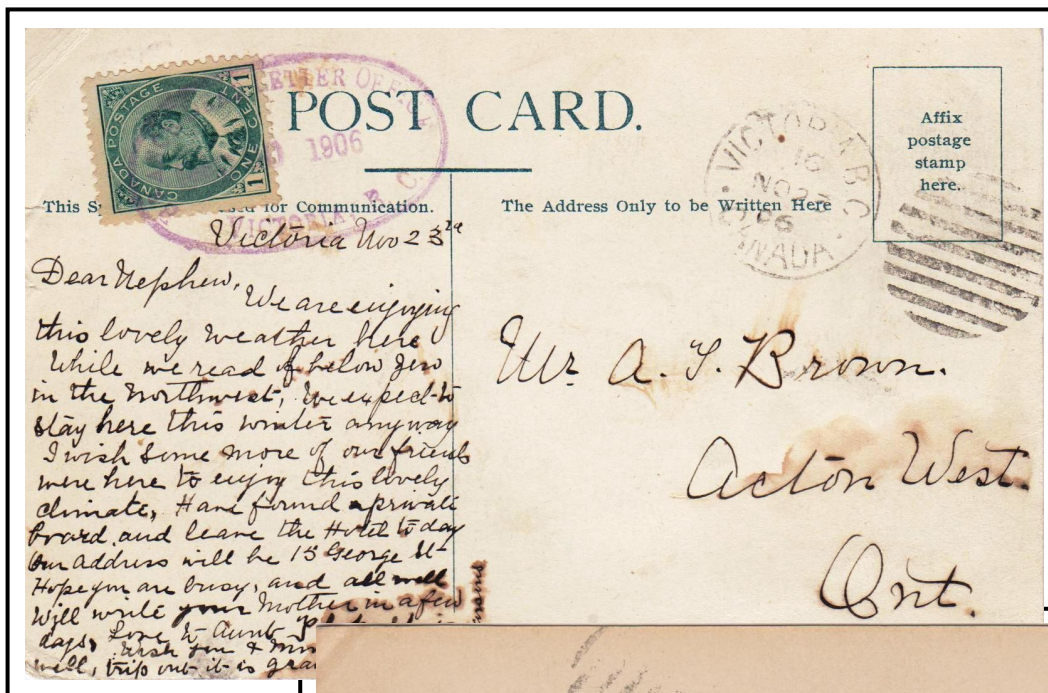 CANADA POSTAGE
ONE CENT
1 1
LETTER OFFICE
1906
VICTORIA B C
POST CARD.
VICTORIA B.C.
16
NO 23
06
CANADA
Affix
postage
stamp
here.
This S sed for Communication.
The Address Only to be Written Here
Victoria Nov 23rd
Dear Nephew,
We are enjoying
this lovely weather here
While we read of below Zero
in the Northwest, We expect to
stay here this winter anyway
I wish some more of our friends
were here to enjoy this lovely
climate, Have found a private
board, and leave the Hotel to day
Our address will be 15 George St
Hope you are busy, and all well
Will write your Mother in a few
days, Love to Aunt
Wish you &
well, trip out it is
Mr A. T. Brown.
Acton West.
Ont.